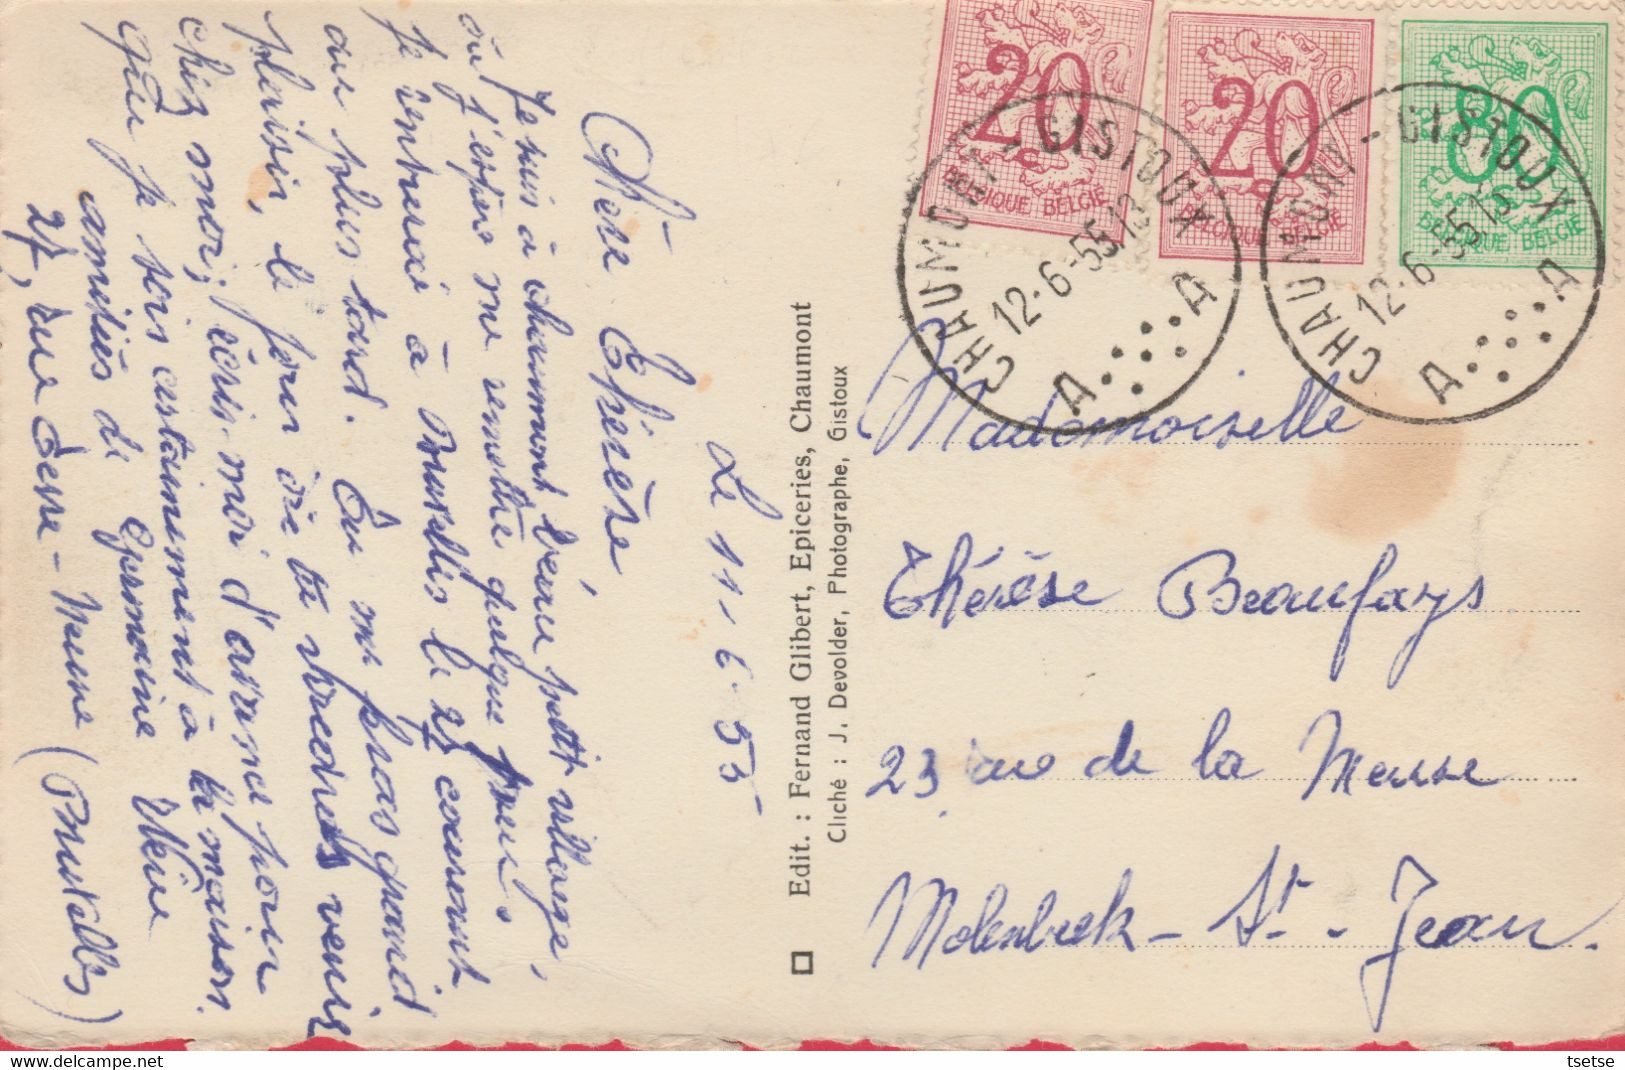 Le 11-6-55
Chère Thérèse
Je suis à Chaumont, beau petit village,
où j'espère me remettre quelque peu.
Je rentrerai à Bruxelles le 25 courant
au plus tard. Tu me feras grand
plaisir, le jour où tu viendras
chez moi; écris-moi d'avance pour
que je sois certainement à la maison.
amitiés de Germaine
27, rue (Bruxelles)
Edit. : Fernand Glibert, Epiceries, Chaumont
Cliché : J. Devolder, Photographe, Gistoux
20
BELGIQUE BELGIË
20
BELGIQUE BELGIË
80
BELGIQUE BELGIË
CHAUMONT-GISTOUX
12-6-55 13
A A
CHAUMONT-GISTOUX
12-6-55 13
A A
Mademoiselle
Thérèse Beaufays
23 rue de la Meuse
Molenbeek-St-Jean.
tsetse